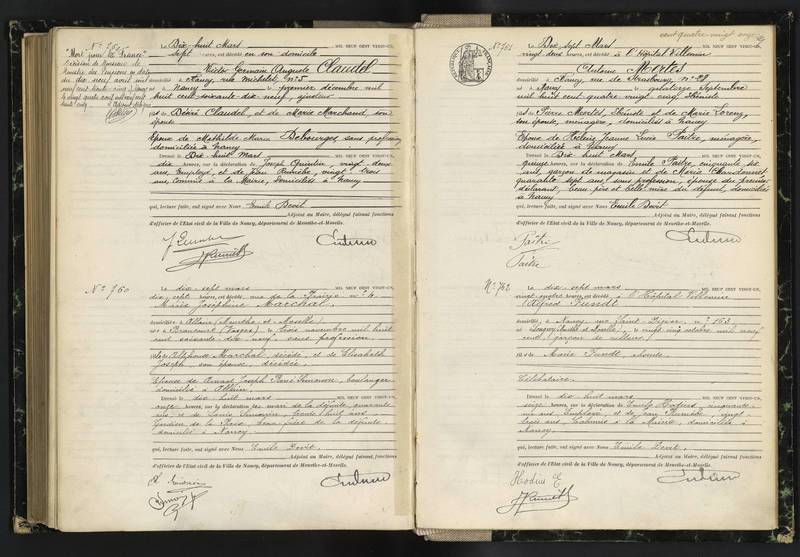 N° 759
"Mort pour la France"
Décision de Monsieur le
Ministre des Pensions en date
du dix neuf avril mil
neuf cent trente cinq. Nancy
le vingt quatre avril mil neuf cent
trente cinq. L'Adjoint délégué
Le Dix-huit Mars MIL NEUF CENT VINGT-UN,
sept heures, est décédé en son domicile
Victor Germain Auguste Claudel
domicilié à Nancy, rue Michelet, n° 5
né à Nancy le premier décembre mil
huit cent soixante dix neuf, ajusteur
fils de Désiré Claudel, et de Marie Marchand, son
épouse
Epoux de Mathilde Marie Debourges, sans profession
domiciliée à Nancy
Devant le Dix huit Mars MIL NEUF CENT VINGT-UN,
dix heures, sur la déclaration de Joseph Quirin, vingt deux
ans, Employé, et de Jean vingt trois
ans, Commis à la Mairie, domiciliés à Nancy
qui, lecture faite, ont signé avec Nous Emile Devit
Adjoint au Maire, délégué faisant fonctions
d'officier de l'Etat civil de la Ville de Nancy, département de Meurthe-et-Moselle.
N° 760
Le dix sept mars MIL NEUF CENT VINGT-UN,
dix sept heures, est décédée, rue de la Prairie n° 4
Marie Joséphine Marchal
domiciliée à Allain (Meurthe et Moselle)
née à Beaucourt (Vosges), le trois novembre mil huit
cent soixante dix neuf, sans profession
fille de Alphonse Marchal, décédé, et de Elisabeth
Joseph, son épouse, décédée
Epouse de Ernest Joseph René Simonin, boulanger
domicilié à Allain
Devant le dix huit mars MIL NEUF CENT VINGT-UN,
onze heures, sur la déclaration de mari de la défunte, quarante
ans, et de Louis Simonin, trente huit ans
beau frère de la défunte
domicilié à Nancy
qui, lecture faite, ont signé avec Nous Emile Devit
Adjoint au Maire, délégué faisant fonctions
d'officier de l'Etat civil de la Ville de Nancy, département de Meurthe-et-Moselle.
cent quatre vingt onze
N° 761
Le Dix Sept Mars MIL NEUF CENT VINGT-UN,
vingt deux heures, est décédé à l'Hôpital Villemin
Antoine Mertes
domicilié à Nancy, rue de Strasbourg n° 28
né à Nancy le quatorze Septembre
mil huit cent quatre vingt cinq,
fils de Pierre Mertes, et de Marie Lorenz,
son épouse, ménagère, domiciliés à Nancy
Epoux de Hélène Jeanne Lucie Paitre, ménagère,
domiciliée à Nancy
Devant le Dix huit Mars MIL NEUF CENT VINGT-UN,
quinze heures, sur la déclaration de Emile Paitre, cinquante six
ans, garçon de magasin et de Maria Chardonnet
quarante sept ans, sans profession, épouse du premier
déclarant, beau père et belle mère du défunt, domiciliés
à Nancy
qui, lecture faite, ont signé avec Nous Emile Devit
Adjoint au Maire, délégué faisant fonctions
d'officier de l'Etat civil de la Ville de Nancy, département de Meurthe-et-Moselle.
Paitre
Paitre
N° 762
Le dix sept mars MIL NEUF CENT VINGT-UN,
vingt quatre heures, est décédé à l'Hôpital Villemin
Alfred Fundt
domicilié à Nancy, rue n° 163
né à Longwy (Meurthe et Moselle), le vingt cinq octobre mil neuf
cent, garçon de culture
fils de Marie Fundt
Célibataire
Devant le dix huit mars MIL NEUF CENT VINGT-UN,
seize heures, sur la déclaration de Emile Hodius, cinquante
six ans, Employé, et de Jean vingt
trois ans, Commis à la Mairie, domiciliés à
Nancy
qui, lecture faite, ont signé avec Nous Emile Devit
Adjoint au Maire, délégué faisant fonctions
d'officier de l'Etat civil de la Ville de Nancy, département de Meurthe-et-Moselle.
Hodius E